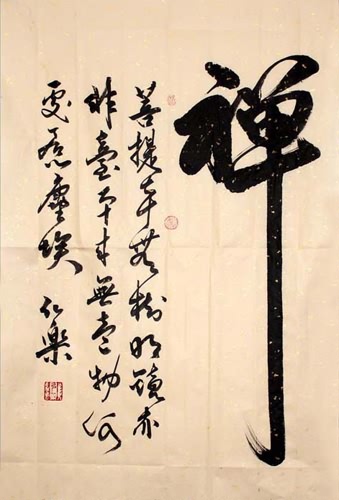 禅
菩提本無樹明鏡亦
非臺本來無壹物何
處惹塵埃 仁樂